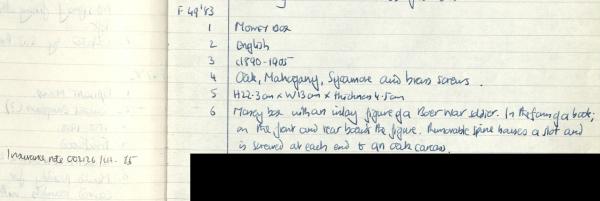 F 49'83
1 Money box
2 English
3 c1890-1905
4 Oak, Mahogany, Sycamore and brass screws.
5 H22.3cm x W13cm x thickness 4.5cm
6 Money box with an inlay figure of a Boer War soldier. In the form of a book;
on the front and rear boards the figure. Removable spine houses a slot and
is screwed at each end to an oak carcass.
Insurance note